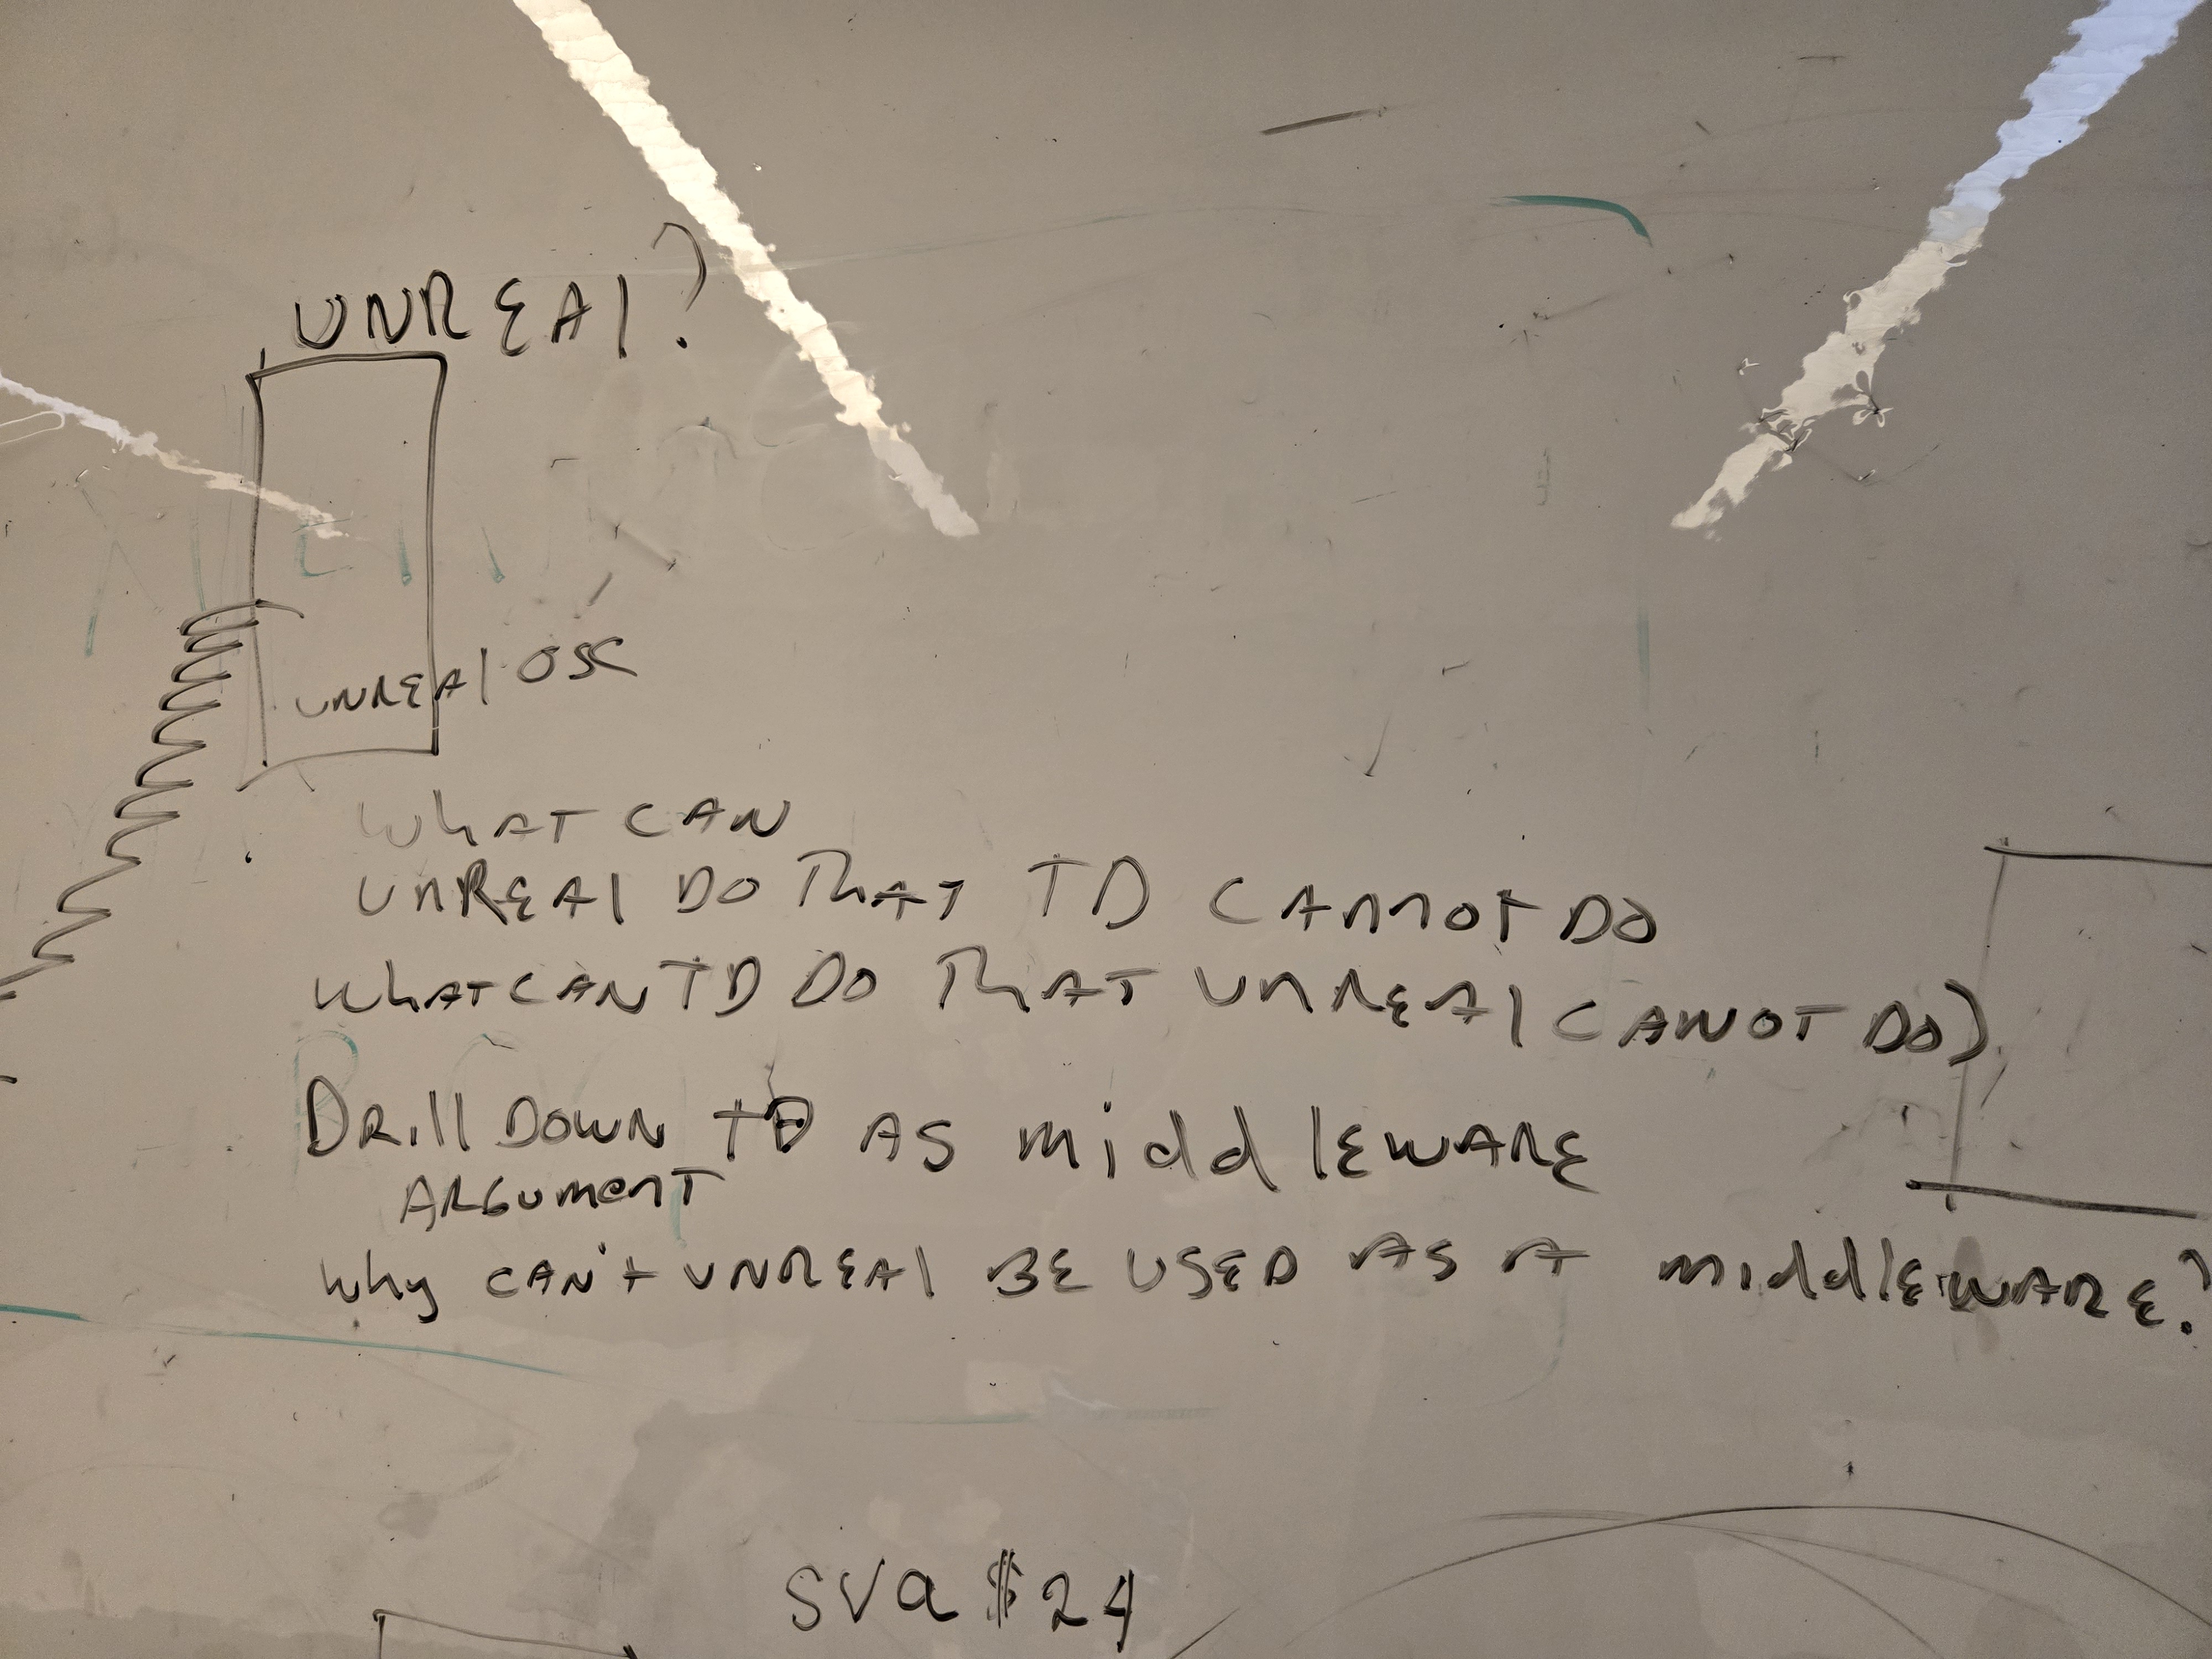 UNREAl?
UNREAl OSC
WhAT CAN
UNREAl DO ThAT TD CANNOT DO
WhAT CAN TD DO ThAT UNREAl CANOT DO)
DRill DOWN TD AS middlEWARE
ARGUmenT
Why CAN't UNREAl BE USED AS A middlEWARE?
SVA $24